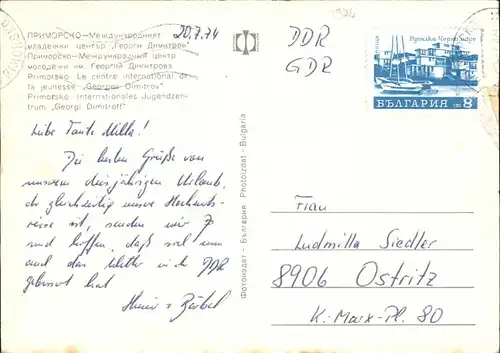 ПРИМОРСКО – Международният
младежки център „Георги Димитров"
Приморско – Международный центр
молодежи им. Георгия Димитрова
Primorsko – Le centre international de
la jeunesse „Georges Dimitrov"
Primorsko – Internationales Jugendzen-
trum „Georgi Dimitroff"
20.7.74
DDR
GDR
БЪЛГАРИЯ ст 8
Liebe Tante Milla!
Die besten Grüße von
unserem diesjährigen Urlaub,
der gleichzeitig unsere Hochzeits-
reise ist, senden wir
und hoffen, daß sich nun
auch das Wetter in der DDR
gebessert hat
Heinz u. Bärbel
Фотоиздат - България Photoizdat - Bulgaria
Frau
Ludmilla Siedler
8906 Ostritz
K.-Marx-Pl. 80